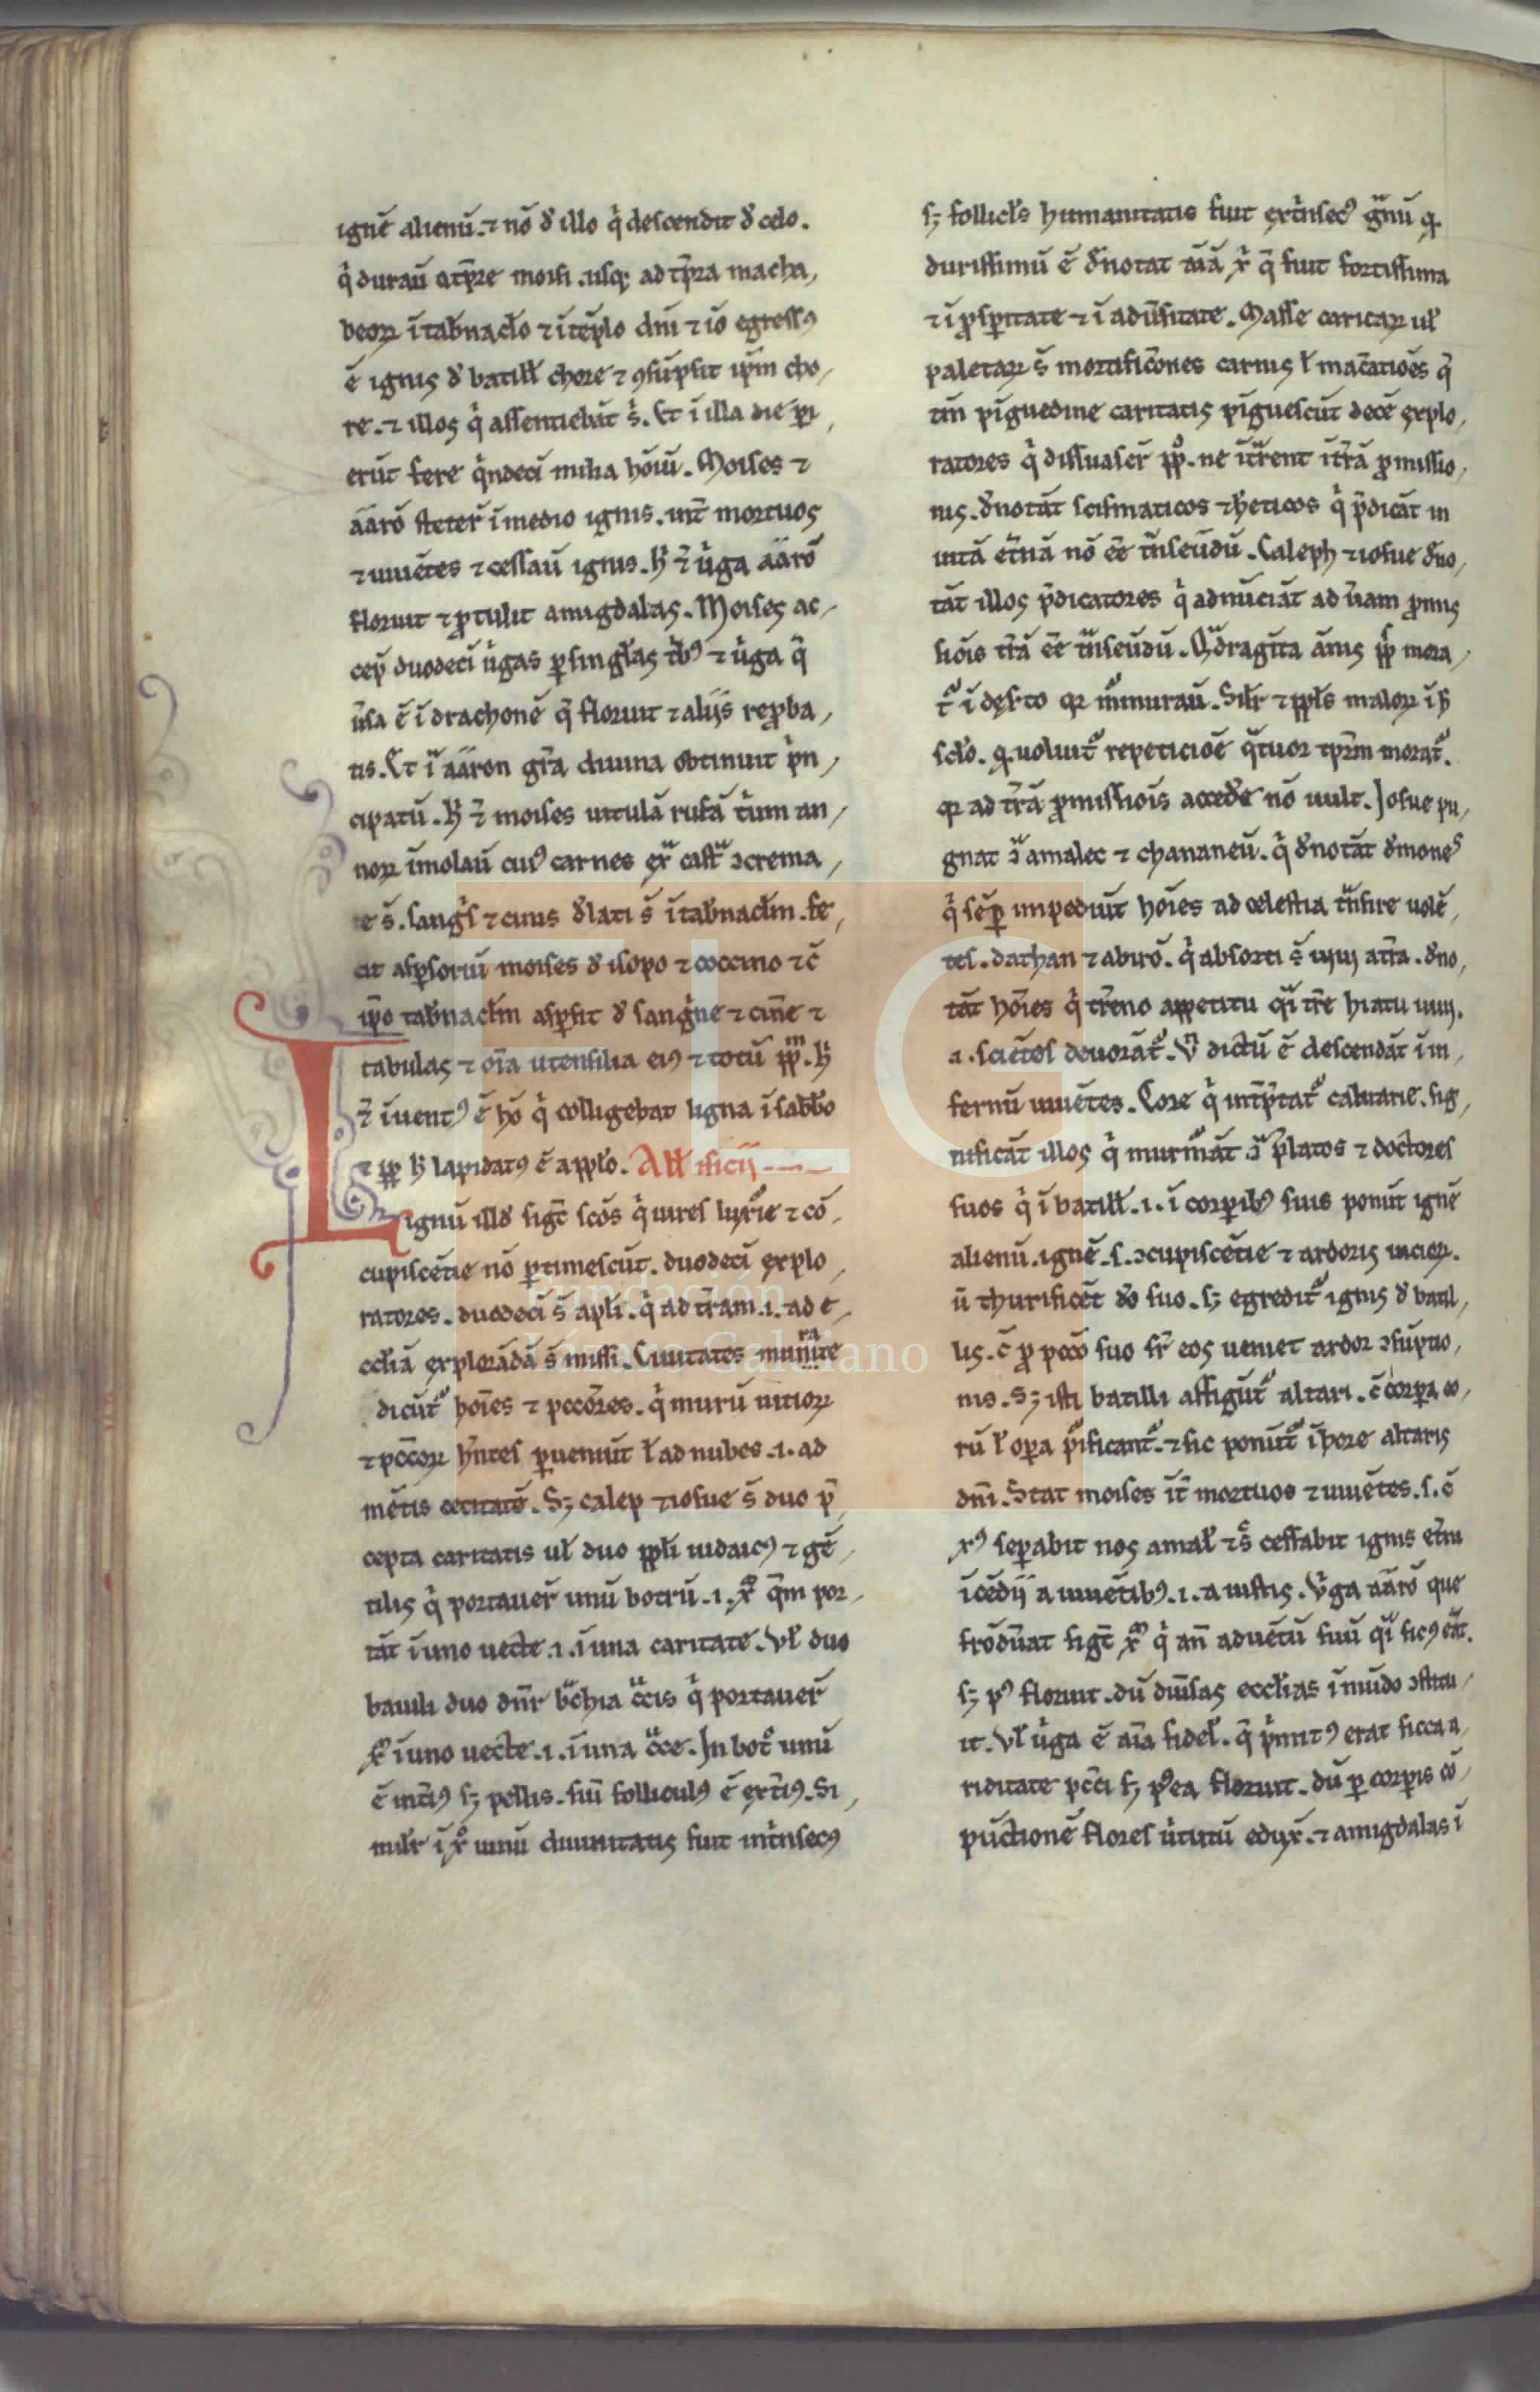 ignē alienū. ⁊ nō đ illo q̇ descendit đ celo.
q̇ durauͥ a tp̄re moisi. usq; ad tp̄ra macha,
beoꝝ ī tab̄naclo ⁊ ītēplo dnī ⁊ iō egressꝰ
ē ignis đ batill chore ⁊ ꝯsūpsit ip̄m cho,
re. ⁊ illos q̇ assentiebāt s̄. Et ī illa die ꝑi,
erūt fere q̇ndecī milia hōiū. Moises ⁊
aarō steter̄ ī medio ignis. int̄ mortuos
⁊ uiuētes ⁊ cessauͥ ignis. h̄ ⁊̄ uͥga aarō
floruit ⁊ ꝓtulit amigdalas. Moises ac,
cep̄ duodecī uͥgas ꝑ singlas tbꝰ ⁊ uͥga q̄
ūsa ē ī drachonē q̄ floruit ⁊ aliis reproba,
tis. Et iͣ aaron gr̄a diuina obtinuit pͥn,
cipatū. h̄ ⁊̄ moises uitulā rufā tͥum an,
noꝝ īmolauͥ cuiꝰ carnes exͣ castͣ ɔcrema,
te s̄. sangͥs ⁊ cinis đlati s̄ ī tab̄naclm. fe,
cit asꝑsoriū moises đ isopo ⁊ coccino ⁊ c̄
ip̄o tab̄naclm asꝑsit đ sangͥne ⁊ cin̄e ⁊
tabulas ⁊ oīa utensilia eiꝰ ⁊ totū pp̄m. h̄
⁊̄ īuentꝰ ē hō q̇ colligebat ligna ī sabb̄o
⁊ pp̄ h̄ lapidatꝰ ē a pplo. All isicij
Lignū illđ sigt̄ scōs q̇ uires luxͥie ⁊ cō,
cupiscētie nō ꝑtimescūt. duodecī explo,
ratores. duodecī s̄ apli. q̇ ad tr̄am .i. ad e,
cclīā explorādā s̄ missi. Ciuitates munite
dicūtͬ hoīes ⁊ pccōres. q̇ murū uitioꝝ
⁊ pccōꝝ hn̄tes ꝑueniūt l ad nubes .i. ad
mētis cecitatē. Sꝫ calep ⁊ iosue s̄ duo p̄,
cepta caritatis ul duo ppli iudaicꝰ ⁊ gē,
tilis q̇ portauer̄ unū botrū .i. xᵐ q̄m por,
tāt ī uno uecte .i. ī una caritate. Vl duo
baiuli duo dn̄r bͣchia cͣcis q̇ portauer̄
xᵐ ī uno uecte .i. ī una cͣce. In botͦ unū
ē int̄iꝰ sꝫ pellis. siū folliculꝰ ē ext̄iꝰ. Si,
milr ī xͦ uinū diuinitatis fuit intͥnsecꝰ
sꝫ follicls humanitatis fuit extͥnsecꝰ gͣnū qͥ
durissimū ē đnotat aīā xͥ q̄ fuit fortissima
⁊ ī ꝓsꝑitate ⁊ ī adūsitate. Masse caricaꝝ ul
paletaꝝ s̄ mortificōnes carnis l mac̄atiōes q̄
tm̄ pīguedine caritatis pīguescūt decē explo,
ratores q̇ dissuaser̄ pp̄lo. ne ītͣrent ītr̄ā ꝓmissio,
nis. đnotāt scismaticos ⁊ hͤticos q̇ p̄dicāt in
uitā et̄nā nō ee tͣnseūdū. Caleph ⁊ iosue đno,
tāt illos p̄dicatores q̇ adnūciāt ad ūam ꝓmis
siōis tr̄ā ee tͣnseūdū. Qͣdragīta ānis ppls mora,
tͬ ī deserto qꝛ mͬmurauͥ. Silr ⁊ ppls maloꝝ ī h̄
sclo. q. uoluitͬ repeticiōe qͣtuor tp̄rm moratͬ.
qꝛ ad tr̄ā ꝓmissiōis accedͤe nō uult. Josue pu,
gnat ɔͣ amalec ⁊ chananeū. q̇ đnotāt đmones
q̇ sēꝑ impediūt hoīes ad celestia tͣnsire uolē,
tes. dathan ⁊ abirō. q̇ absorti s̄ uiui a tr̄a. đno,
tāt hoīes q̇ tr̄eno appetitu qͣi tr̄e hiatu uiui.
.i. sciētes deuorātͬ. Vn̄ dictū ē descendāt ī in,
fernū uiuētes. Core q̇ int̄ꝑtatͬ caluarie. sig,
nificāt illos q̇ murmͬāt ɔͣ p̄latos ⁊ doctores
suos q̇ ī batill .i. ī corꝑibꝰ suis ponūt ignē
alienū. ignē .s. ɔcupiscētie ⁊ ardoris uicioꝝ.
ū thurificēt đo suo. sꝫ egreditͬ ignis đ batil,
lis. c̄ ꝓ pccō suo sr̄ eos ueniet ardor ɔsūptio,
nis. Sꝫ isti batilli affigūtͬ altari. c̄ corꝑa eo,
rū l oꝑa pͬificantͬ. ⁊ sic ponūtͬ ī hore altaris
dnī. Stat moises īt̄ mortuos ⁊ uiuētes. s. c̄
xꝰ seꝑabit nos a mal ⁊ s̄ cessabit ignis et̄ni
īcēdij a uiuētibꝰ .i. a iustis. Vͥga aarō que
frōdūat sigt̄ xᵐ q̇ an̄ aduētū suū qͣi siccꝰ eͣt.
sꝫ pꝰ floruit. dū diūsas ecclīas ī mūdo ɔstitu,
it. Vl uͥga ē aīa fidel. q̄ pͥmitꝰ erat sicca a,
riditate pcc̄i sꝫ pꝰea floruit. dū ꝑ corꝑis cō,
pūctionē flores uͥtutū eduxͥ. ⁊ amigdalas ī
FLG
Fundación
Lázaro Galdiano